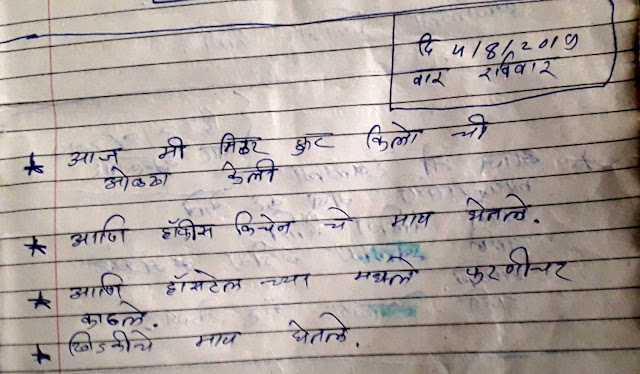 दि ५/8/2019
वार रविवार
★ आज मी मिटर फुट किलो ची
ओळख केली
★ आणि हॉफीस किचेन चे माप घेतले.
★ आणि हॉसटेल च्या मधले फरणीचर
काढले.
★ खिडकीचे माप घेतले.